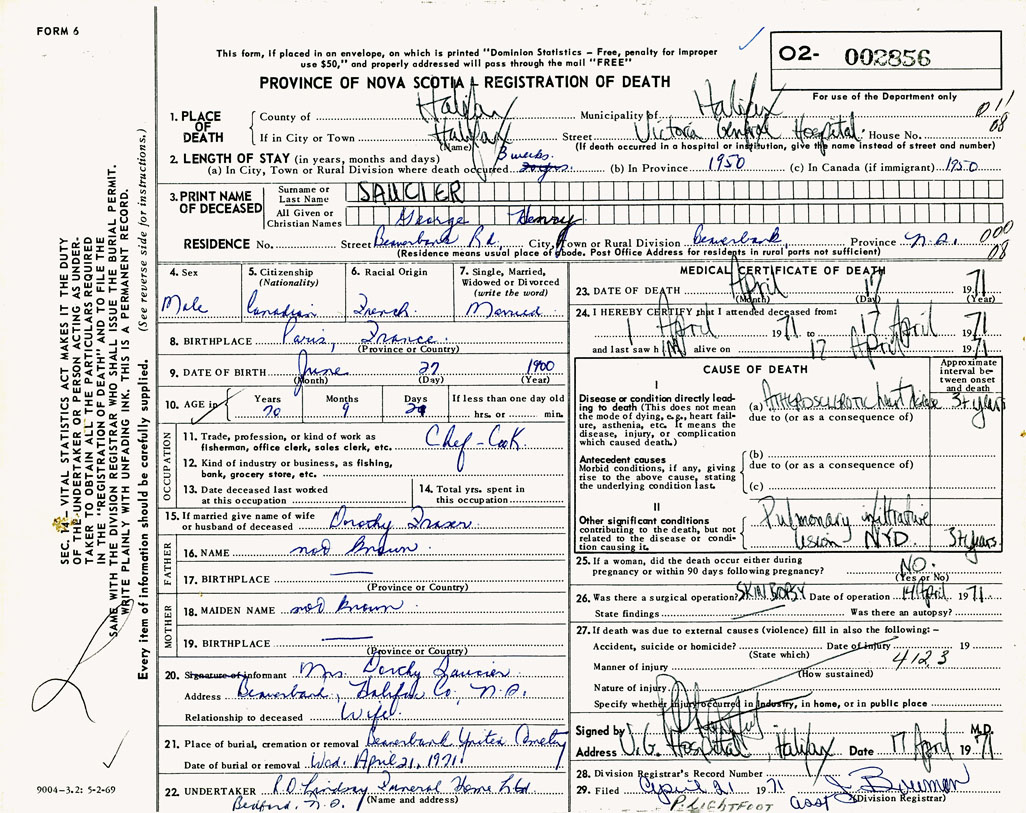 FORM 6
This form, if placed in an envelope, on which is printed "Dominion Statistics – Free, penalty for improper
use $50," and properly addressed will pass through the mail "FREE"
O2- 002856
PROVINCE OF NOVA SCOTIA – REGISTRATION OF DEATH
For use of the Department only
1. PLACE OF DEATH County of Halifax Municipality of Halifax 011
If in City or Town Halifax Street Victoria General Hospital House No. 08
(Name) (If death occurred in a hospital or institution, give the name instead of street and number)
2. LENGTH OF STAY (in years, months and days) 3 weeks.
(a) In City, Town or Rural Division where death occurred (b) In Province 1950 (c) In Canada (if immigrant) 1950
3. PRINT NAME OF DECEASED Surname or Last Name SAUCIER
All Given or Christian Names George Henry
RESIDENCE No. Street Beaverbank Rd. City, Town or Rural Division Beaverbank, Province N.S. 000
(Residence means usual place of abode. Post Office Address for residents in rural parts not sufficient) 08
4. Sex Male
5. Citizenship (Nationality) Canadian
6. Racial Origin French
7. Single, Married, Widowed or Divorced (write the word) Married
8. BIRTHPLACE Paris, France.
(Province or Country)
9. DATE OF BIRTH June 27 1900
(Month) (Day) (Year)
10. AGE in Years 70 Months 9 Days If less than one day old hrs. or min.
OCCUPATION
11. Trade, profession, or kind of work as fisherman, office clerk, sales clerk, etc. Chef-Cook
12. Kind of industry or business, as fishing, bank, grocery store, etc.
13. Date deceased last worked at this occupation
14. Total yrs. spent in this occupation
15. If married give name of wife or husband of deceased Dorothy Fraser
FATHER
16. NAME not known.
17. BIRTHPLACE —
(Province or Country)
MOTHER
18. MAIDEN NAME not known.
19. BIRTHPLACE —
(Province or Country)
20. Signature of informant Mrs. Dorothy Saucier
Address Beaverbank, Halifax Co., N.S.
Relationship to deceased Wife.
21. Place of burial, cremation or removal Beaverbank United Cemetery
Date of burial or removal Wed. April 21, 1971
22. UNDERTAKER Lindsay Funeral Home Ltd.
Bedford, N.S. (Name and address)
MEDICAL CERTIFICATE OF DEATH
23. DATE OF DEATH April 17 1971
(Month) (Day) (Year)
24. I HEREBY CERTIFY that I attended deceased from:
1 April 1971 to 17 April 1971
and last saw him alive on 17 April 1971
CAUSE OF DEATH
Approximate interval between onset and death
I
Disease or condition directly leading to death (This does not mean the mode of dying, e.g., heart failure, asthenia, etc. It means the disease, injury, or complication which caused death.)
(a) Atherosclerotic heart disease 3+ years
due to (or as a consequence of)
Antecedent causes
Morbid conditions, if any, giving rise to the above cause, stating the underlying condition last.
(b)
due to (or as a consequence of)
(c)
II
Other significant conditions contributing to the death, but not related to the disease or condition causing it.
Pulmonary infiltrative
lesion NYD. 3+ years.
25. If a woman, did the death occur either during pregnancy or within 90 days following pregnancy? NO.
(Yes or No)
26. Was there a surgical operation? SKIN BIOPSY Date of operation 14 April 1971
State findings Was there an autopsy?
27. If death was due to external causes (violence) fill in also the following: –
Accident, suicide or homicide? Date of injury 19
(State which) 4123
Manner of injury
(How sustained)
Nature of injury
Specify whether injury occurred in Industry, in home, or in public place
Signed by M.D.
Address V.G. Hospital, Halifax Date 17 April 1971
28. Division Registrar's Record Number
29. Filed April 21 1971 J. Bowman
P. LIGHTFOOT asst (Division Registrar)
SEC. 14 – VITAL STATISTICS ACT MAKES IT THE DUTY
OF THE UNDERTAKER OR PERSON ACTING AS UNDER-
TAKER TO OBTAIN ALL THE PARTICULARS REQUIRED
IN THE "REGISTRATION OF DEATH" AND TO FILE THE
SAME WITH THE DIVISION REGISTRAR WHO SHALL ISSUE THE BURIAL PERMIT.
WRITE PLAINLY WITH UNFADING INK. THIS IS A PERMANENT RECORD.
Every item of information should be carefully supplied. (See reverse side for instructions.)
9004-3.2: 5-2-69